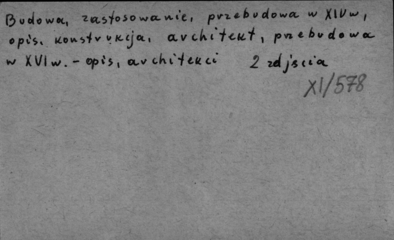 Budowa, zastosowanie, przebudowa w XIV w,
opis. konstrukcja, architekt, przebudowa
w XVI w. - opis, architekci 2 zdjścia
XI/578